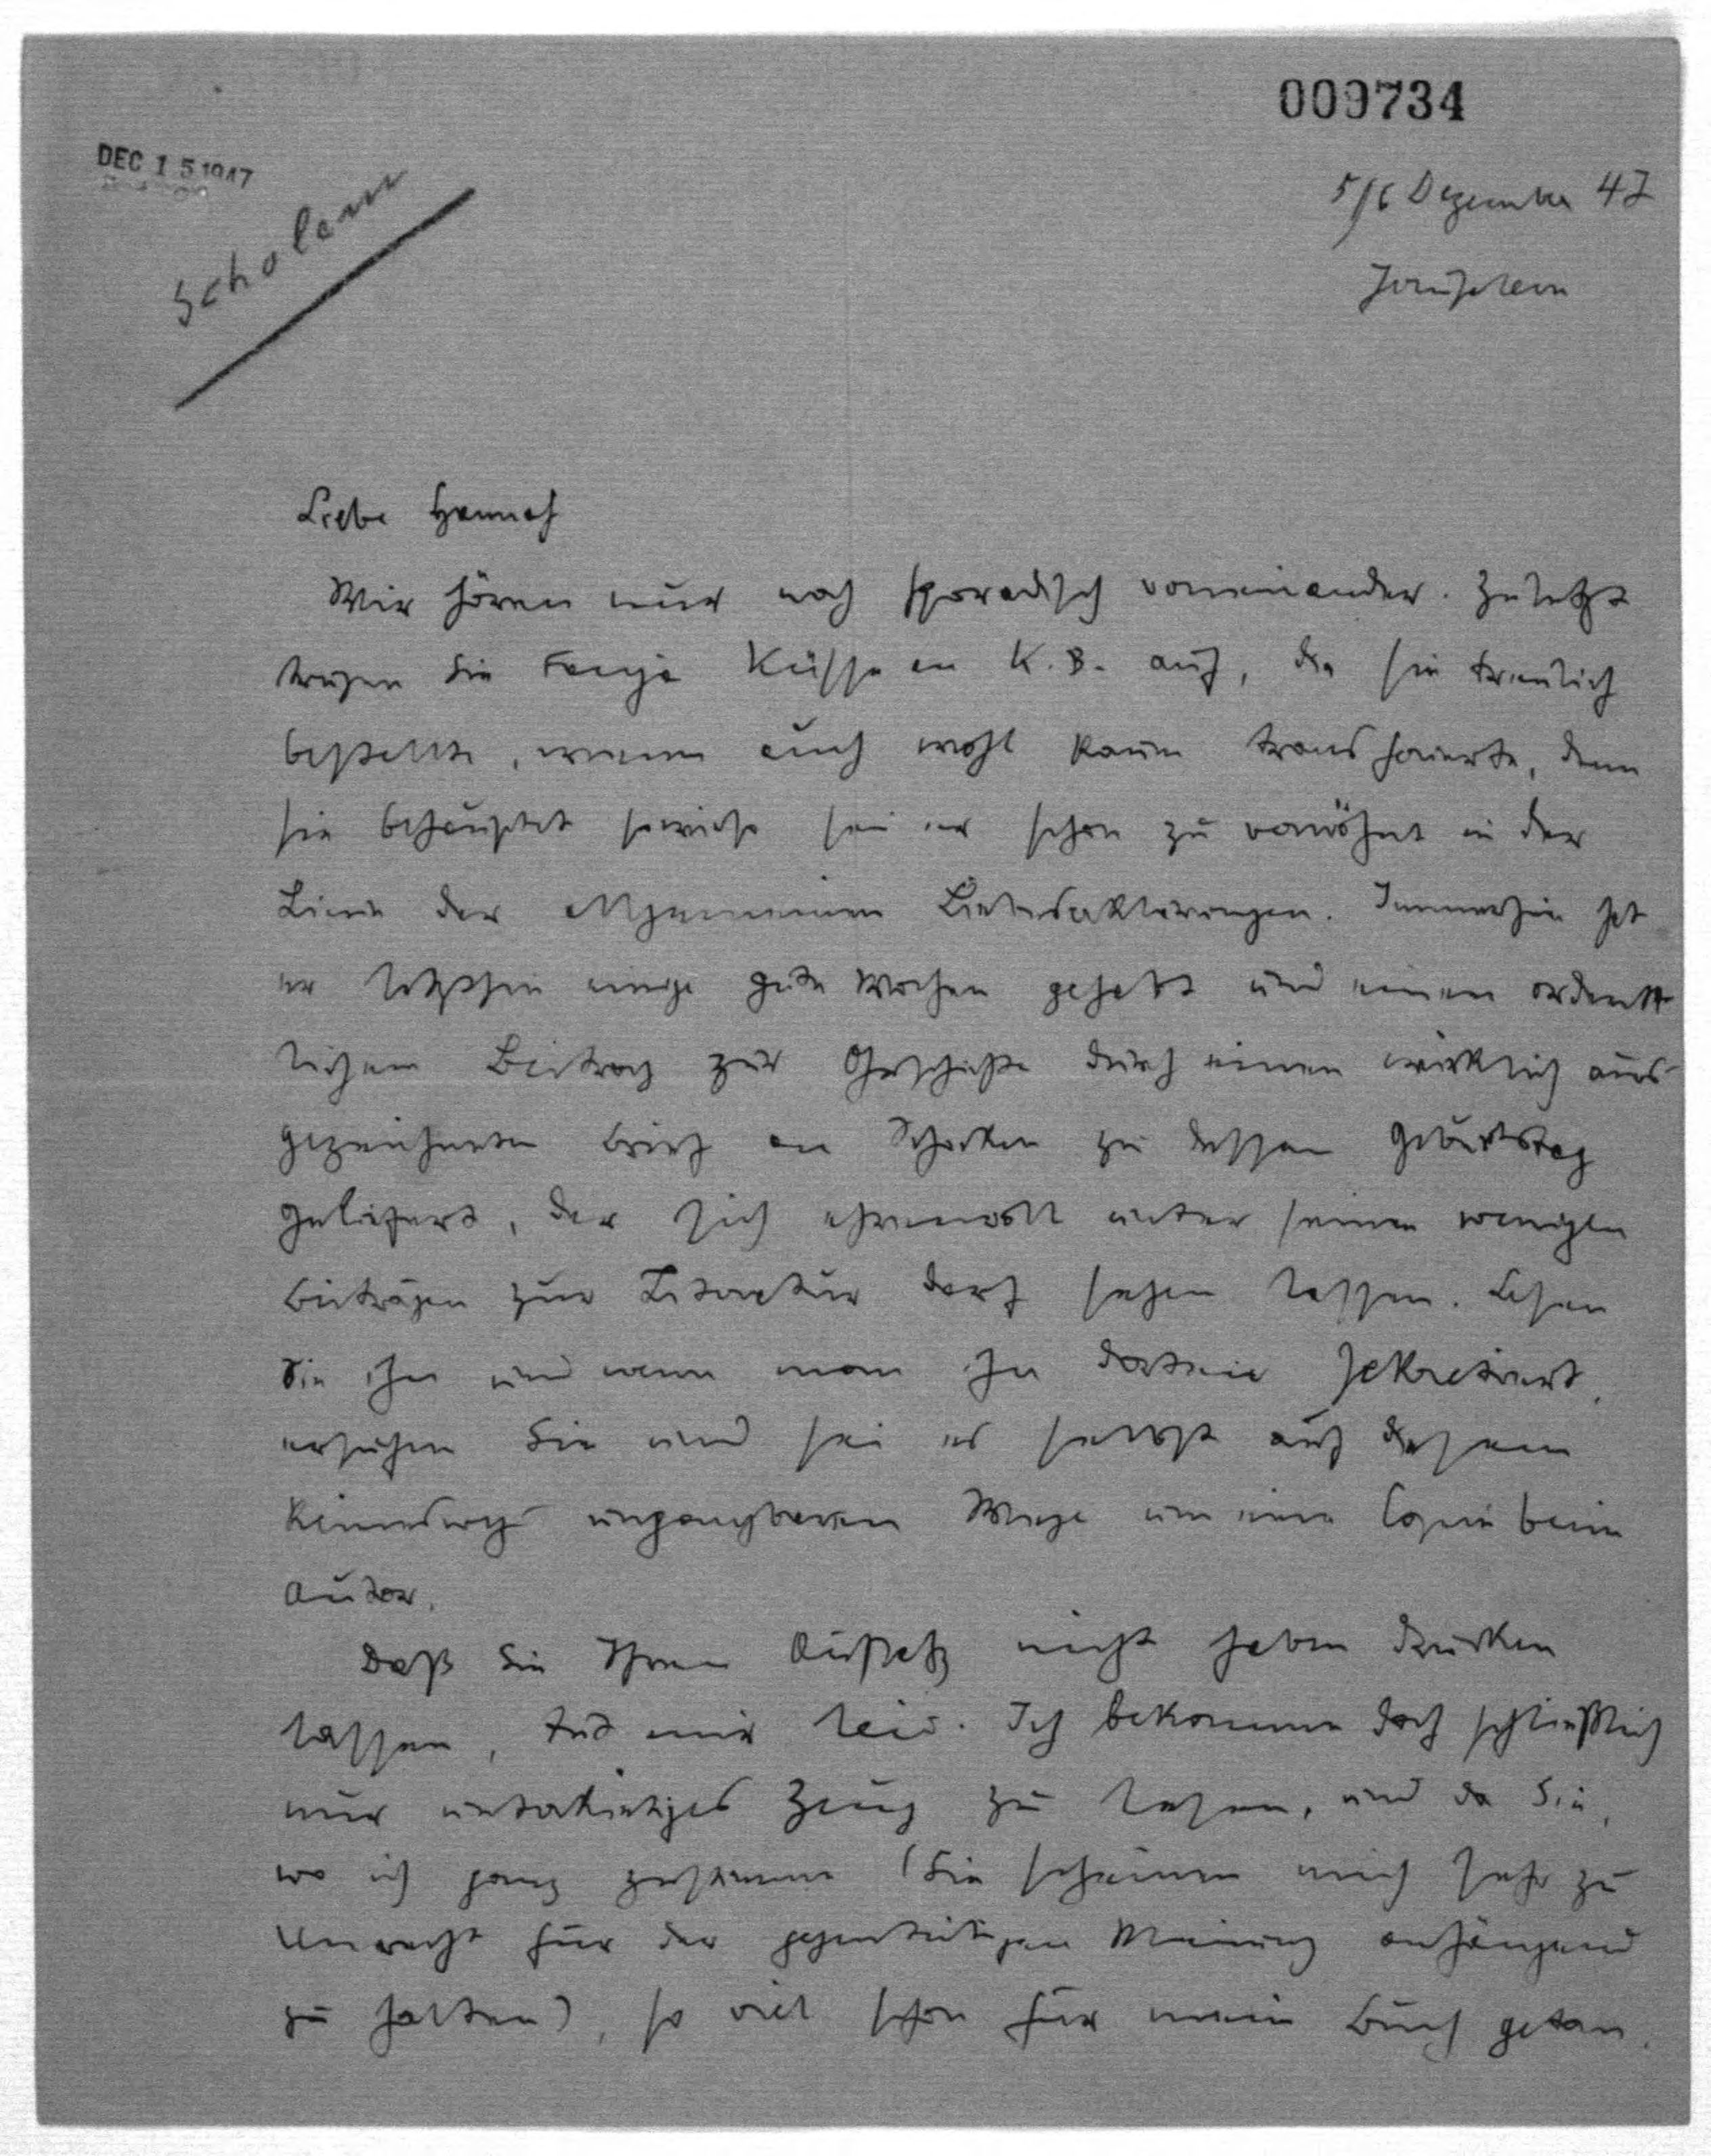 009734
DEC 15 1947
Scholem
5/6 Dezember 47
Jerusalem
Liebe Hannah
Wir hören nur noch sporadisch voneinander. Zuletzt
trugen Sie Fanja Küsse an K. B. auf, die sie treulich
bestellte, wenn auch wohl kaum transferierte, denn
sie behauptet sowieso sei er schon zu verwöhnt in der
Linie der allgemeinen Liebeserklärungen. Immerhin hat
er letzthin einige gute Wochen gehabt und einen ordent-
lichen Beitrag zur Geschichte durch einen wirklich aus-
gezeichneten Brief an Schocken zu dessen Geburtstag
geliefert, der sich ehrenvoll unter seinen wenigen
Beiträgen zur Literatur darf sehen lassen. Lesen
Sie ihn und wenn man ihn dort sekretiert,
ersuchen Sie und sei es selbst auf diesem
keineswegs ungangbaren Wege um eine Copie beim
Autor.
Daß Sie Ihren Aufsatz nicht haben drucken
lassen, tut mir leid. Ich bekomme doch schließlich
nur untakitjes Zeug zu lesen, und da Sie,
wo ich ganz zustimme (Sie scheinen mich sehr zu
Unrecht für der gegenteiligen Meinung anhängend
zu halten), so viel schon für mein Buch getan